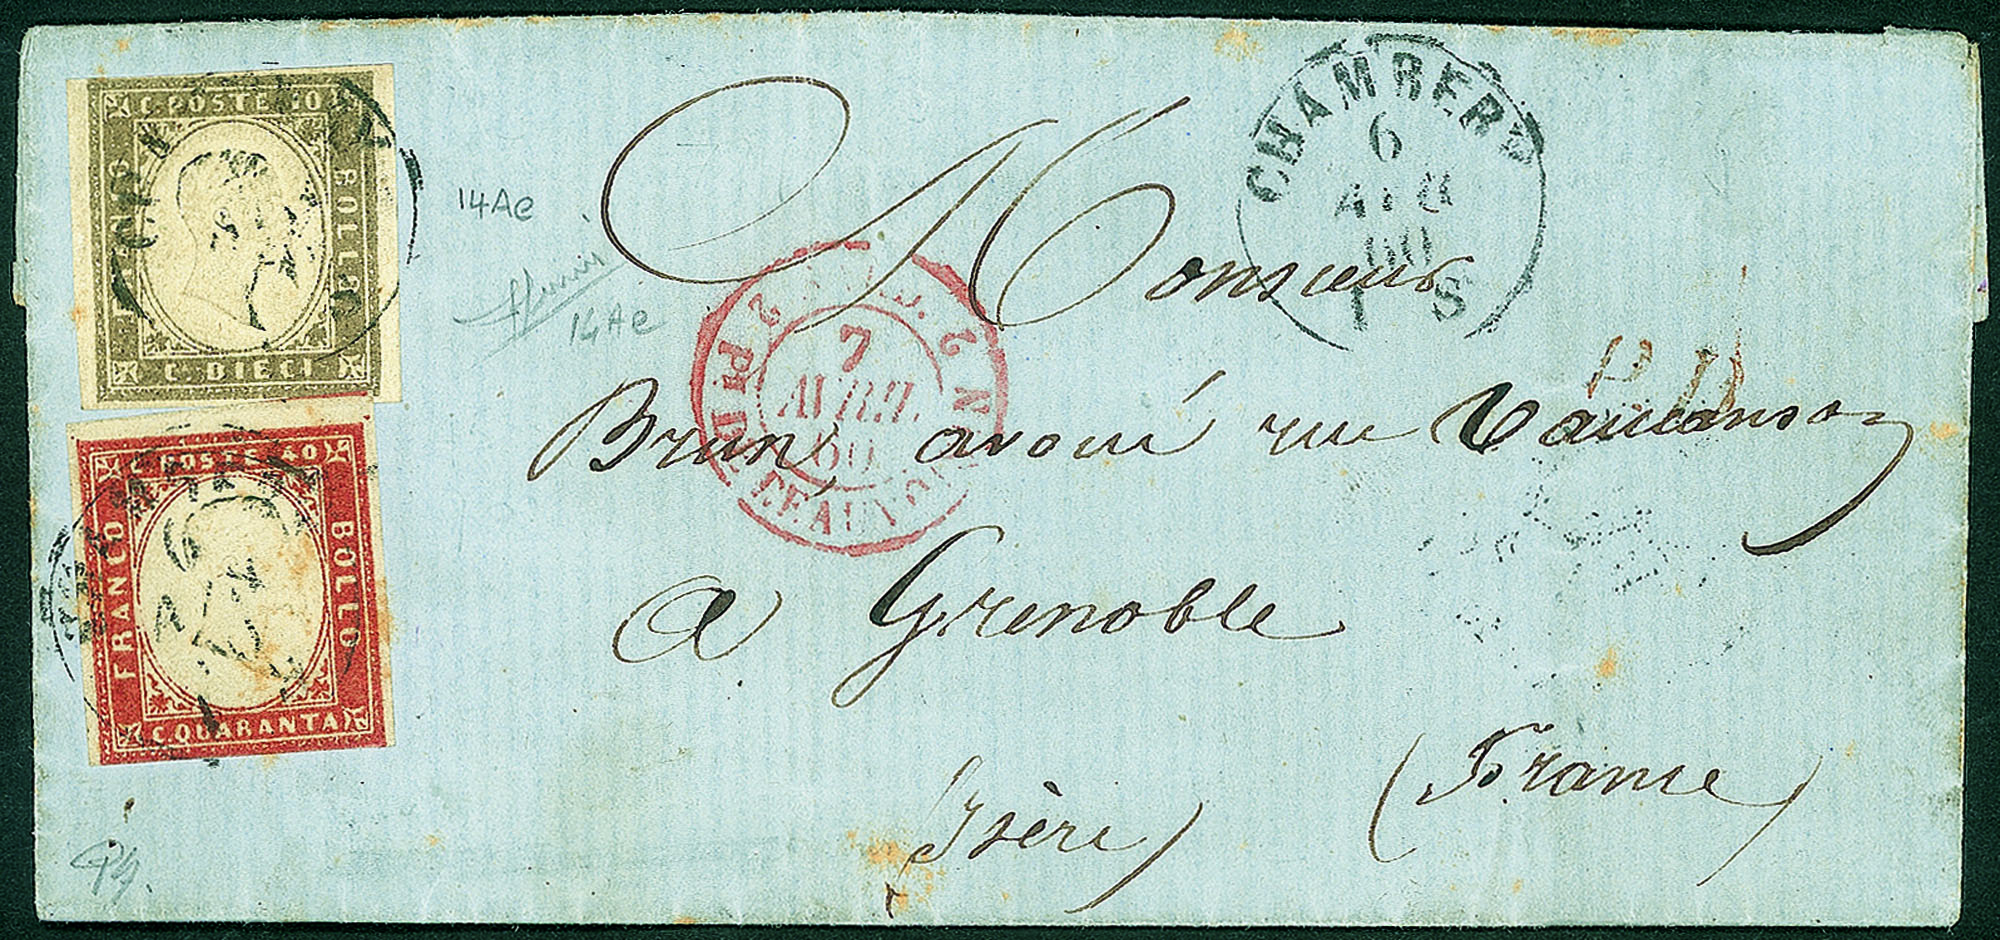 C. POSTE 10
BOLLO
C. DIECI
14Ae
14Ae
C. POSTE 40
FRANCO
BOLLO
C. QUARANTA
6
CHAMBERY
6
APR
60
1 S
7
AVRIL
60
PT DE BEAUVOISIN 2
P.D.
Monsieur
Brun, avoué rue Vaucanson
a Grenoble
Isère)
(France)